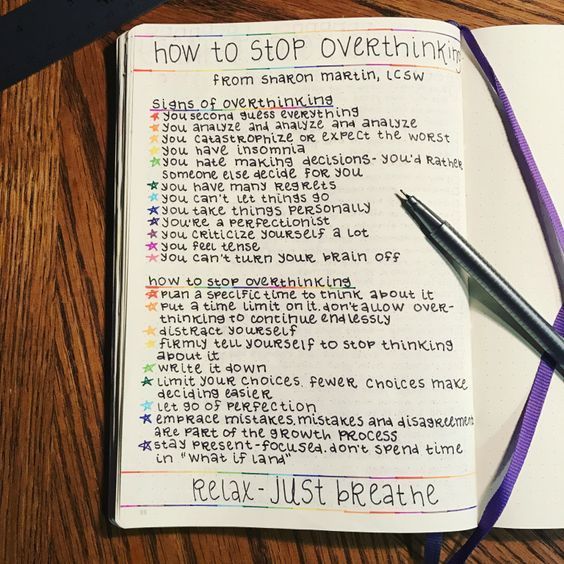 how to stop overthinking
from sharon martin, LCSW
signs of overthinking
you second guess everything
you analyze and analyze and analyze
you catastrophize or expect the worst
you have insomnia
you hate making decisions - you'd rather
someone else decide for you
you have many regrets
you can't let things go
you take things personally
you're a perfectionist
you criticize yourself a lot
you feel tense
you can't turn your brain off
how to stop overthinking
plan a specific time to think about it
put a time limit on it. don't allow over-
thinking to continue endlessly
distract yourself
firmly tell yourself to stop thinking
about it
write it down
limit your choices. fewer choices make
deciding easier
let go of perfection
embrace mistakes. mistakes and disagreement
are part of the growth process
stay present-focused. don't spend time
in "what if land"
relax - just breathe